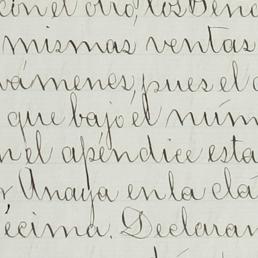 con el otro, los Den
mismas ventas
vámenes, pues el
que bajo el núm
n el apéndice esta
Anaya en la clá
écima. Declaran